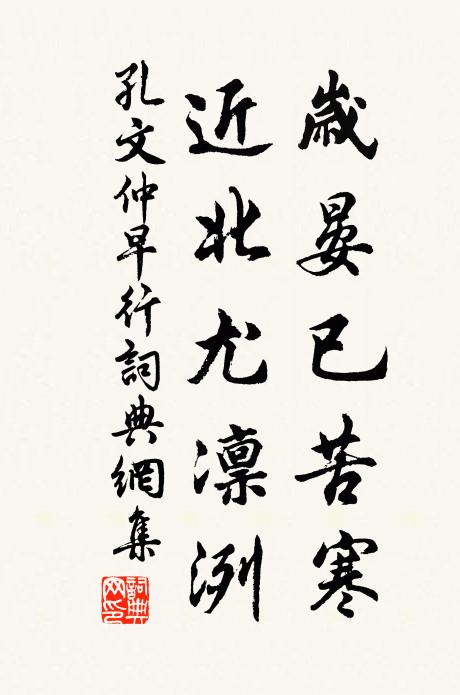 歲晏已苦寒
近北尤凛洌
孔文仲早行詞典網集
詞典網印